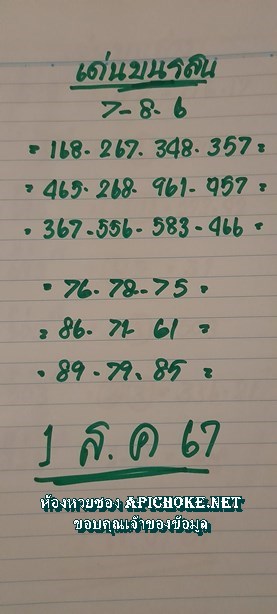 เด่นบนรสิน
7-8-6
= 168-267-348-357 =
= 465-268-961-957 =
= 367-556-583-466 =
= 76-78-75 =
= 86-71-61 =
= 89-79-85 =
1 ส.ค 67
ห้องหวยซอง APICHOKE.NET
ขอบคุณเจ้าของข้อมูล